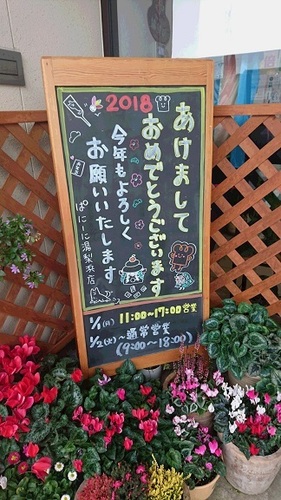 2018
あけまして
おめでとうございます
今年もよろしく
お願いいたします
ぱにーに湯梨浜店
1/1(月) 11:00～17:00営業
1/2(火)～通常営業
(9:00～18:00)